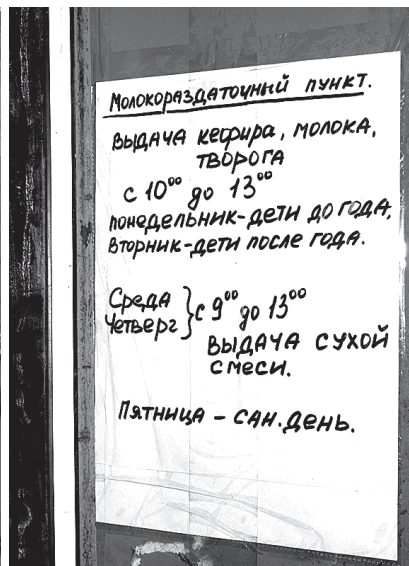 Молокораздаточный пункт.
Выдача кефира, молока,
творога
с 10⁰⁰ до 13⁰⁰
понедельник-дети до года,
вторник-дети после года.
Среда } с 9⁰⁰ до 13⁰⁰
Четверг
выдача сухой
смеси.
Пятница – сан. день.